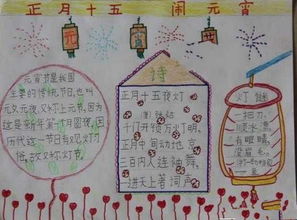 正月十五 闹元宵
元 宵
元宵节是我国
主要的传统节日,也叫
元夕、元夜,又叫上元节,因为
这是新年第一个月圆夜,因
历代这一节日有观灯习
俗,故又称灯节。
诗
正月十五夜灯
千门开锁万灯明,
正月中旬动地京。
三百内人连袖舞,
一进天上著词声。
灯谜
一把刀,
顺水漂,
有眼睛,